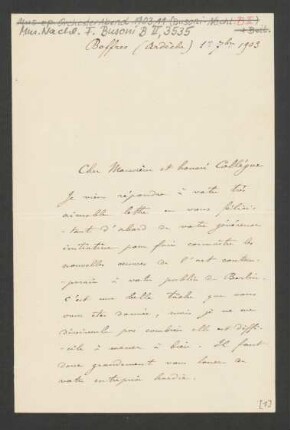 Mus.Nachl. F. Busoni B II, 3535
Boffres (Ardèche) 1er 7bre 1903
Cher Monsieur et honoré Collègue
Je viens répondre à votre très
aimable lettre en vous félici-
tant d'abord de votre généreuse
initiative pour faire connaître les
nouvelles œuvres de l'art contem-
porain à votre public de Berlin.
C'est une belle tâche que vous
vous êtes donnée, mais je ne me
dissimule pas combien elle est diffi-
cile à mener à bien. Il faut
donc grandement vous louer de
votre entreprise hardie.
[1]